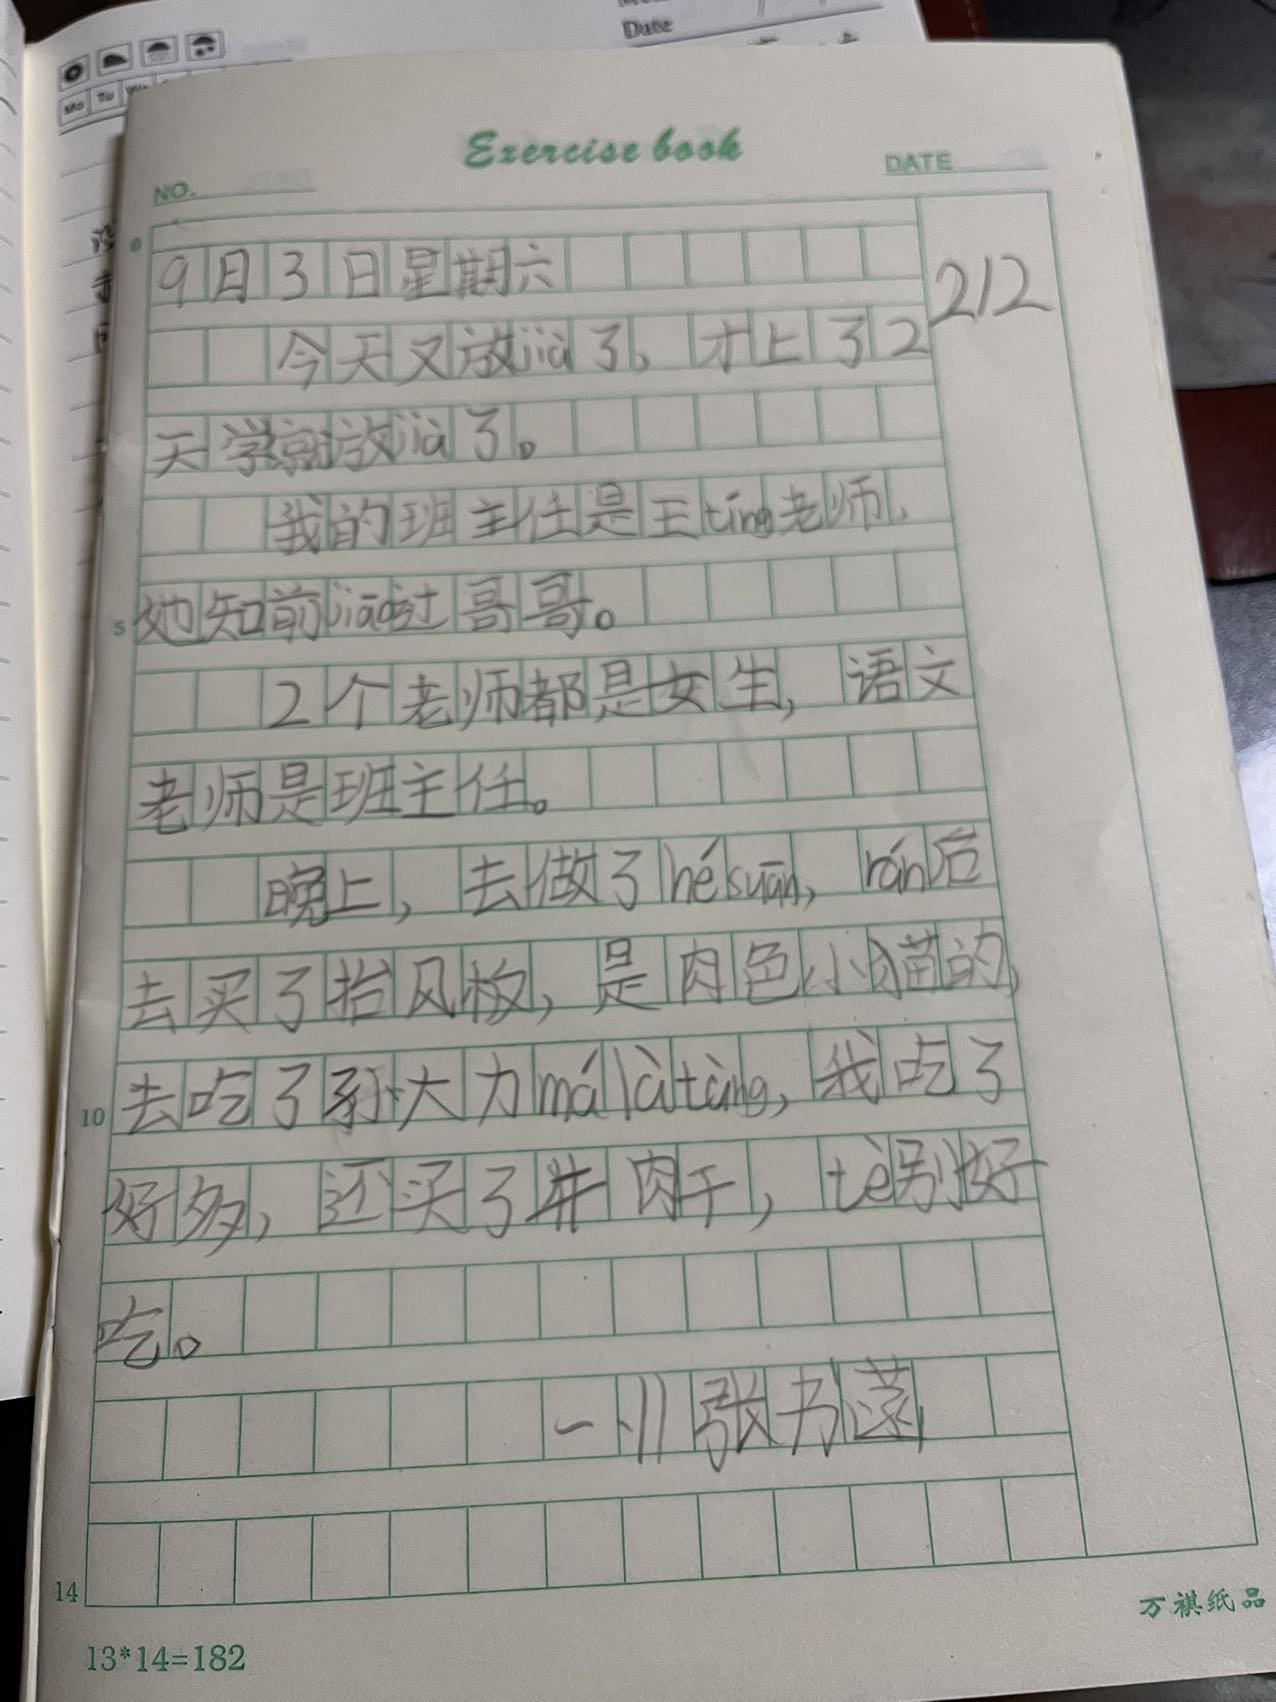 Date
Mo Tu
Exercise book
NO.
DATE
9月3日星期六
212
今天又放jià了，才上了2
天学就放jià了。
我的班主任是王tíng老师，
她知前jiāo过哥哥。
2个老师都是女生，语文
老师是班主任。
晚上，去做了hé suān，rán后
去买了抬风板，是肉色小猫的，
去吃了孙大力má là tàng，我吃了
好多，还买了牛肉干，tè别好
吃。
一.11张书
5
10
14
13*14=182
万祺纸品